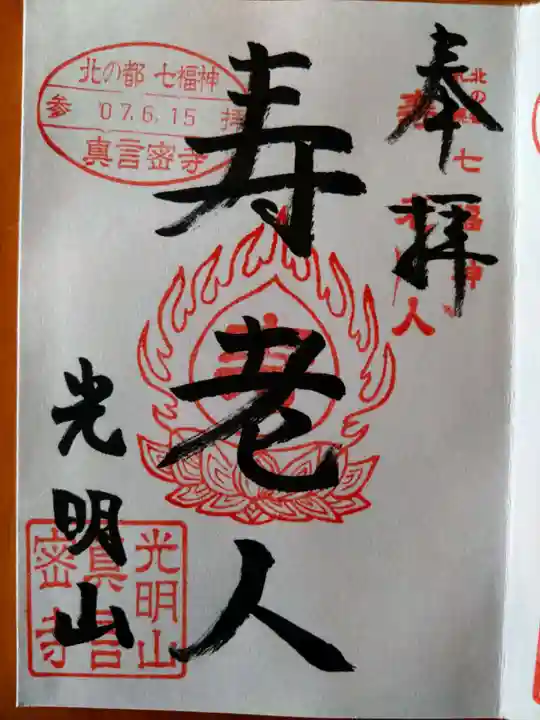 奉拝
北の都七福神
寿老人
寿老人
北の都 七福神
参 '07.6.15 拝
真言密寺
光明山
光明山
真言
密寺